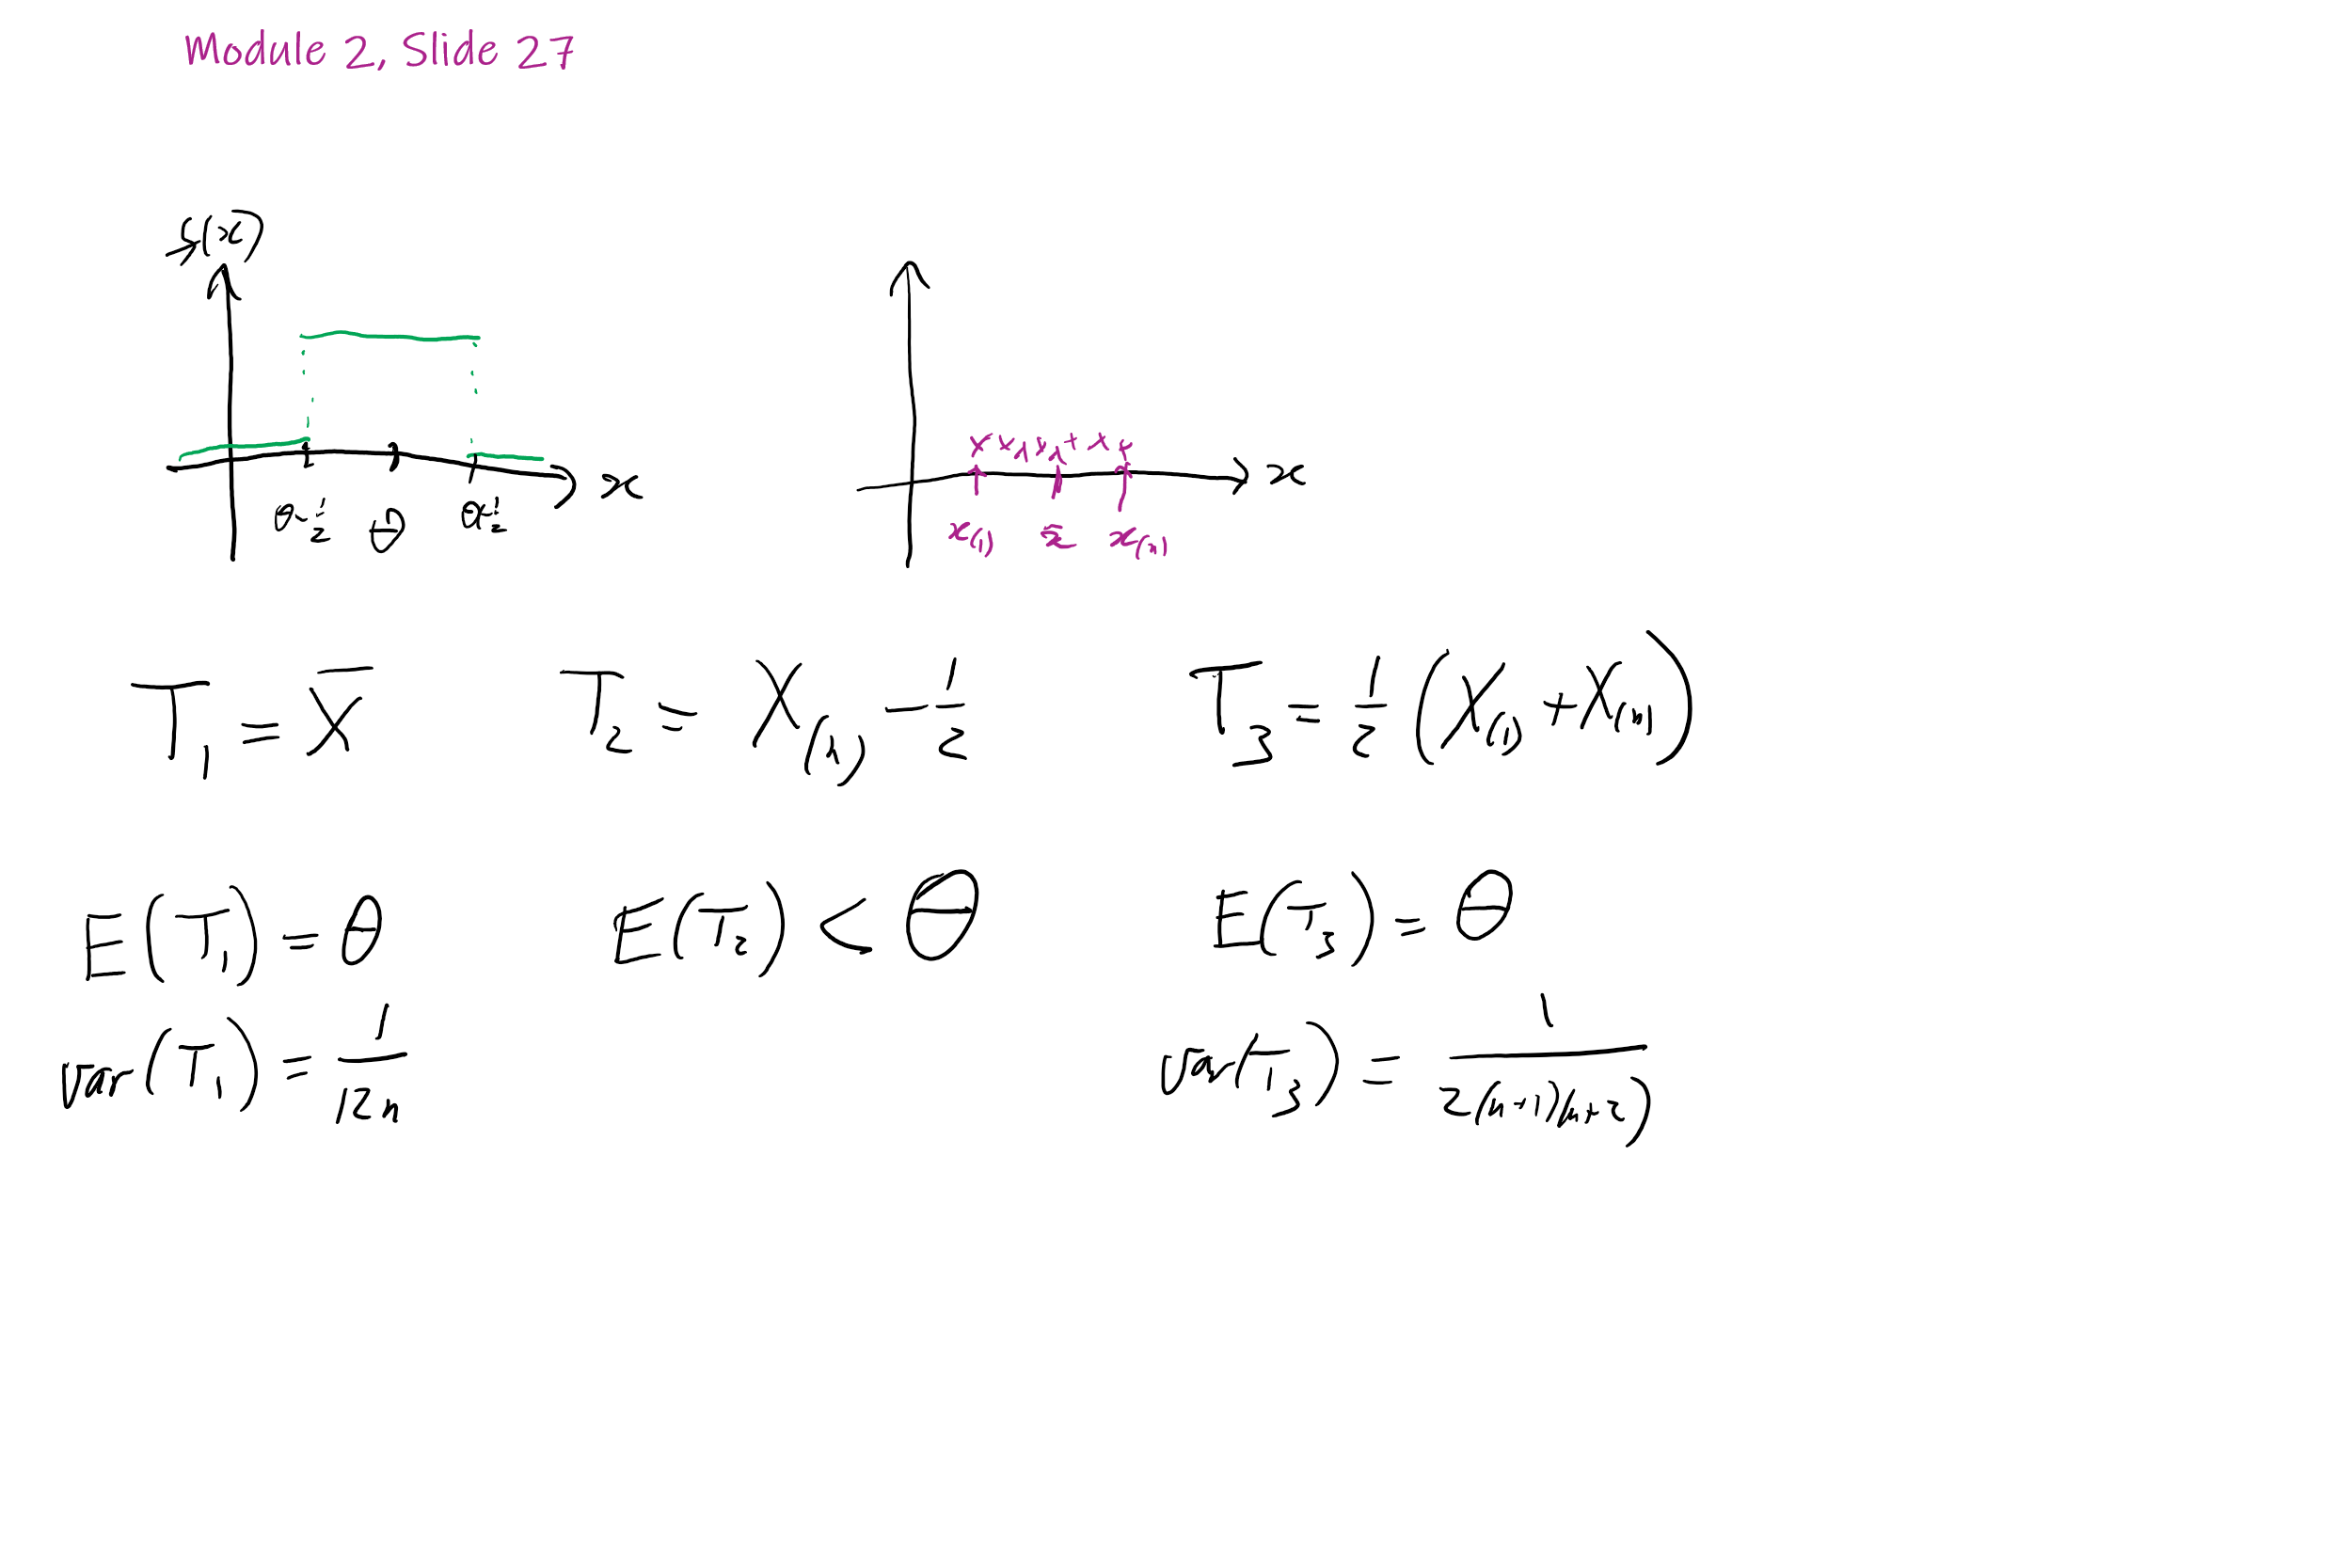 Module 2, Slide 27
f(x)
x
θ-½ θ θ+½
x
x(1) x̄ x(n)
T₁ = X̄ T₂ = X(n) - 1/2 T₃ = 1/2 (X(1) + X(n))
E(T₁) = θ E(T₂) < θ E(T₃) = θ
var(T₁) = 1/12n var(T₃) = 1/2(n+1)(n+2)